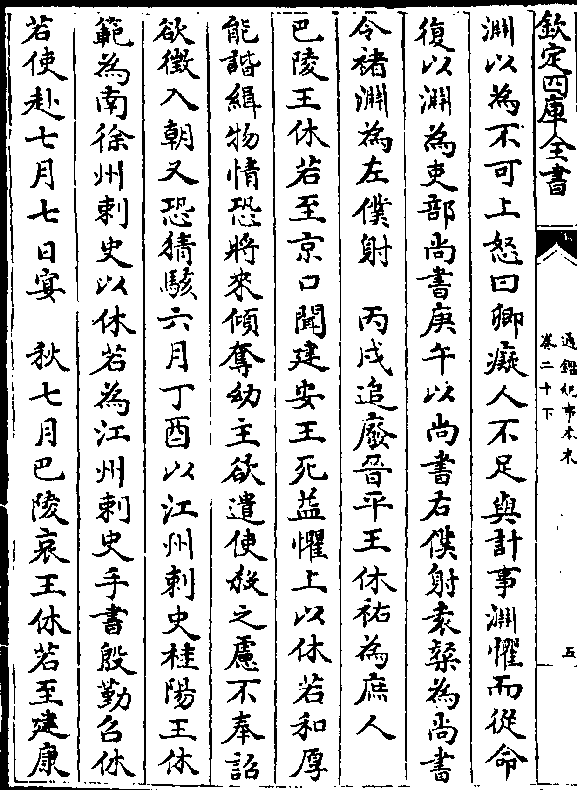 欽定四庫全書
通鑑紀事本末
卷二十下
五
淵以為不可上怒曰卿癡人不足與計事淵懼而從命
復以淵為吏部尚書庚午以尚書右僕射袁粲為尚書
令褚淵為左僕射　丙戌追廢晉平王休祐為庶人
巴陵王休若至京口聞建安王死益懼上以休若和厚
能諧緝物情恐將來傾奪幼主欲遣使殺之慮不奉詔
欲徵入朝又恐猜駭六月丁酉以江州刺史桂陽王休
範為南徐州刺史以休若為江州刺史手書殷勤召休
若使赴七月七日宴　秋七月巴陵哀王休若至建康